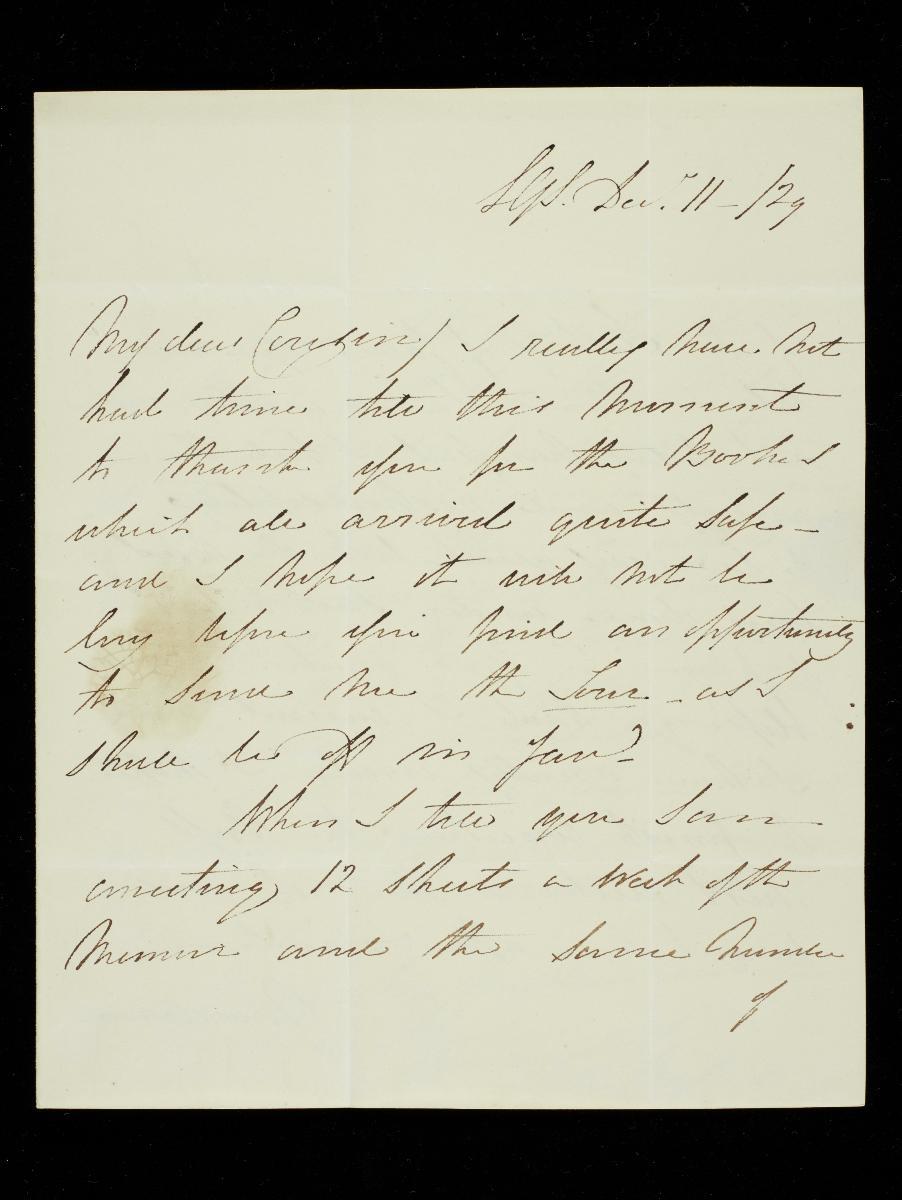 Decr. 11 - /29
My dear Cousin / I really have not
had time till this moment
to thank you for the Books
which all arrived quite safe -
and I hope it will not be
long before you find an opportunity
to send me the Tour - as I
shall be off in Jany
When I tell you I am
correcting 12 sheets a week of the
Memoir and the same number
of